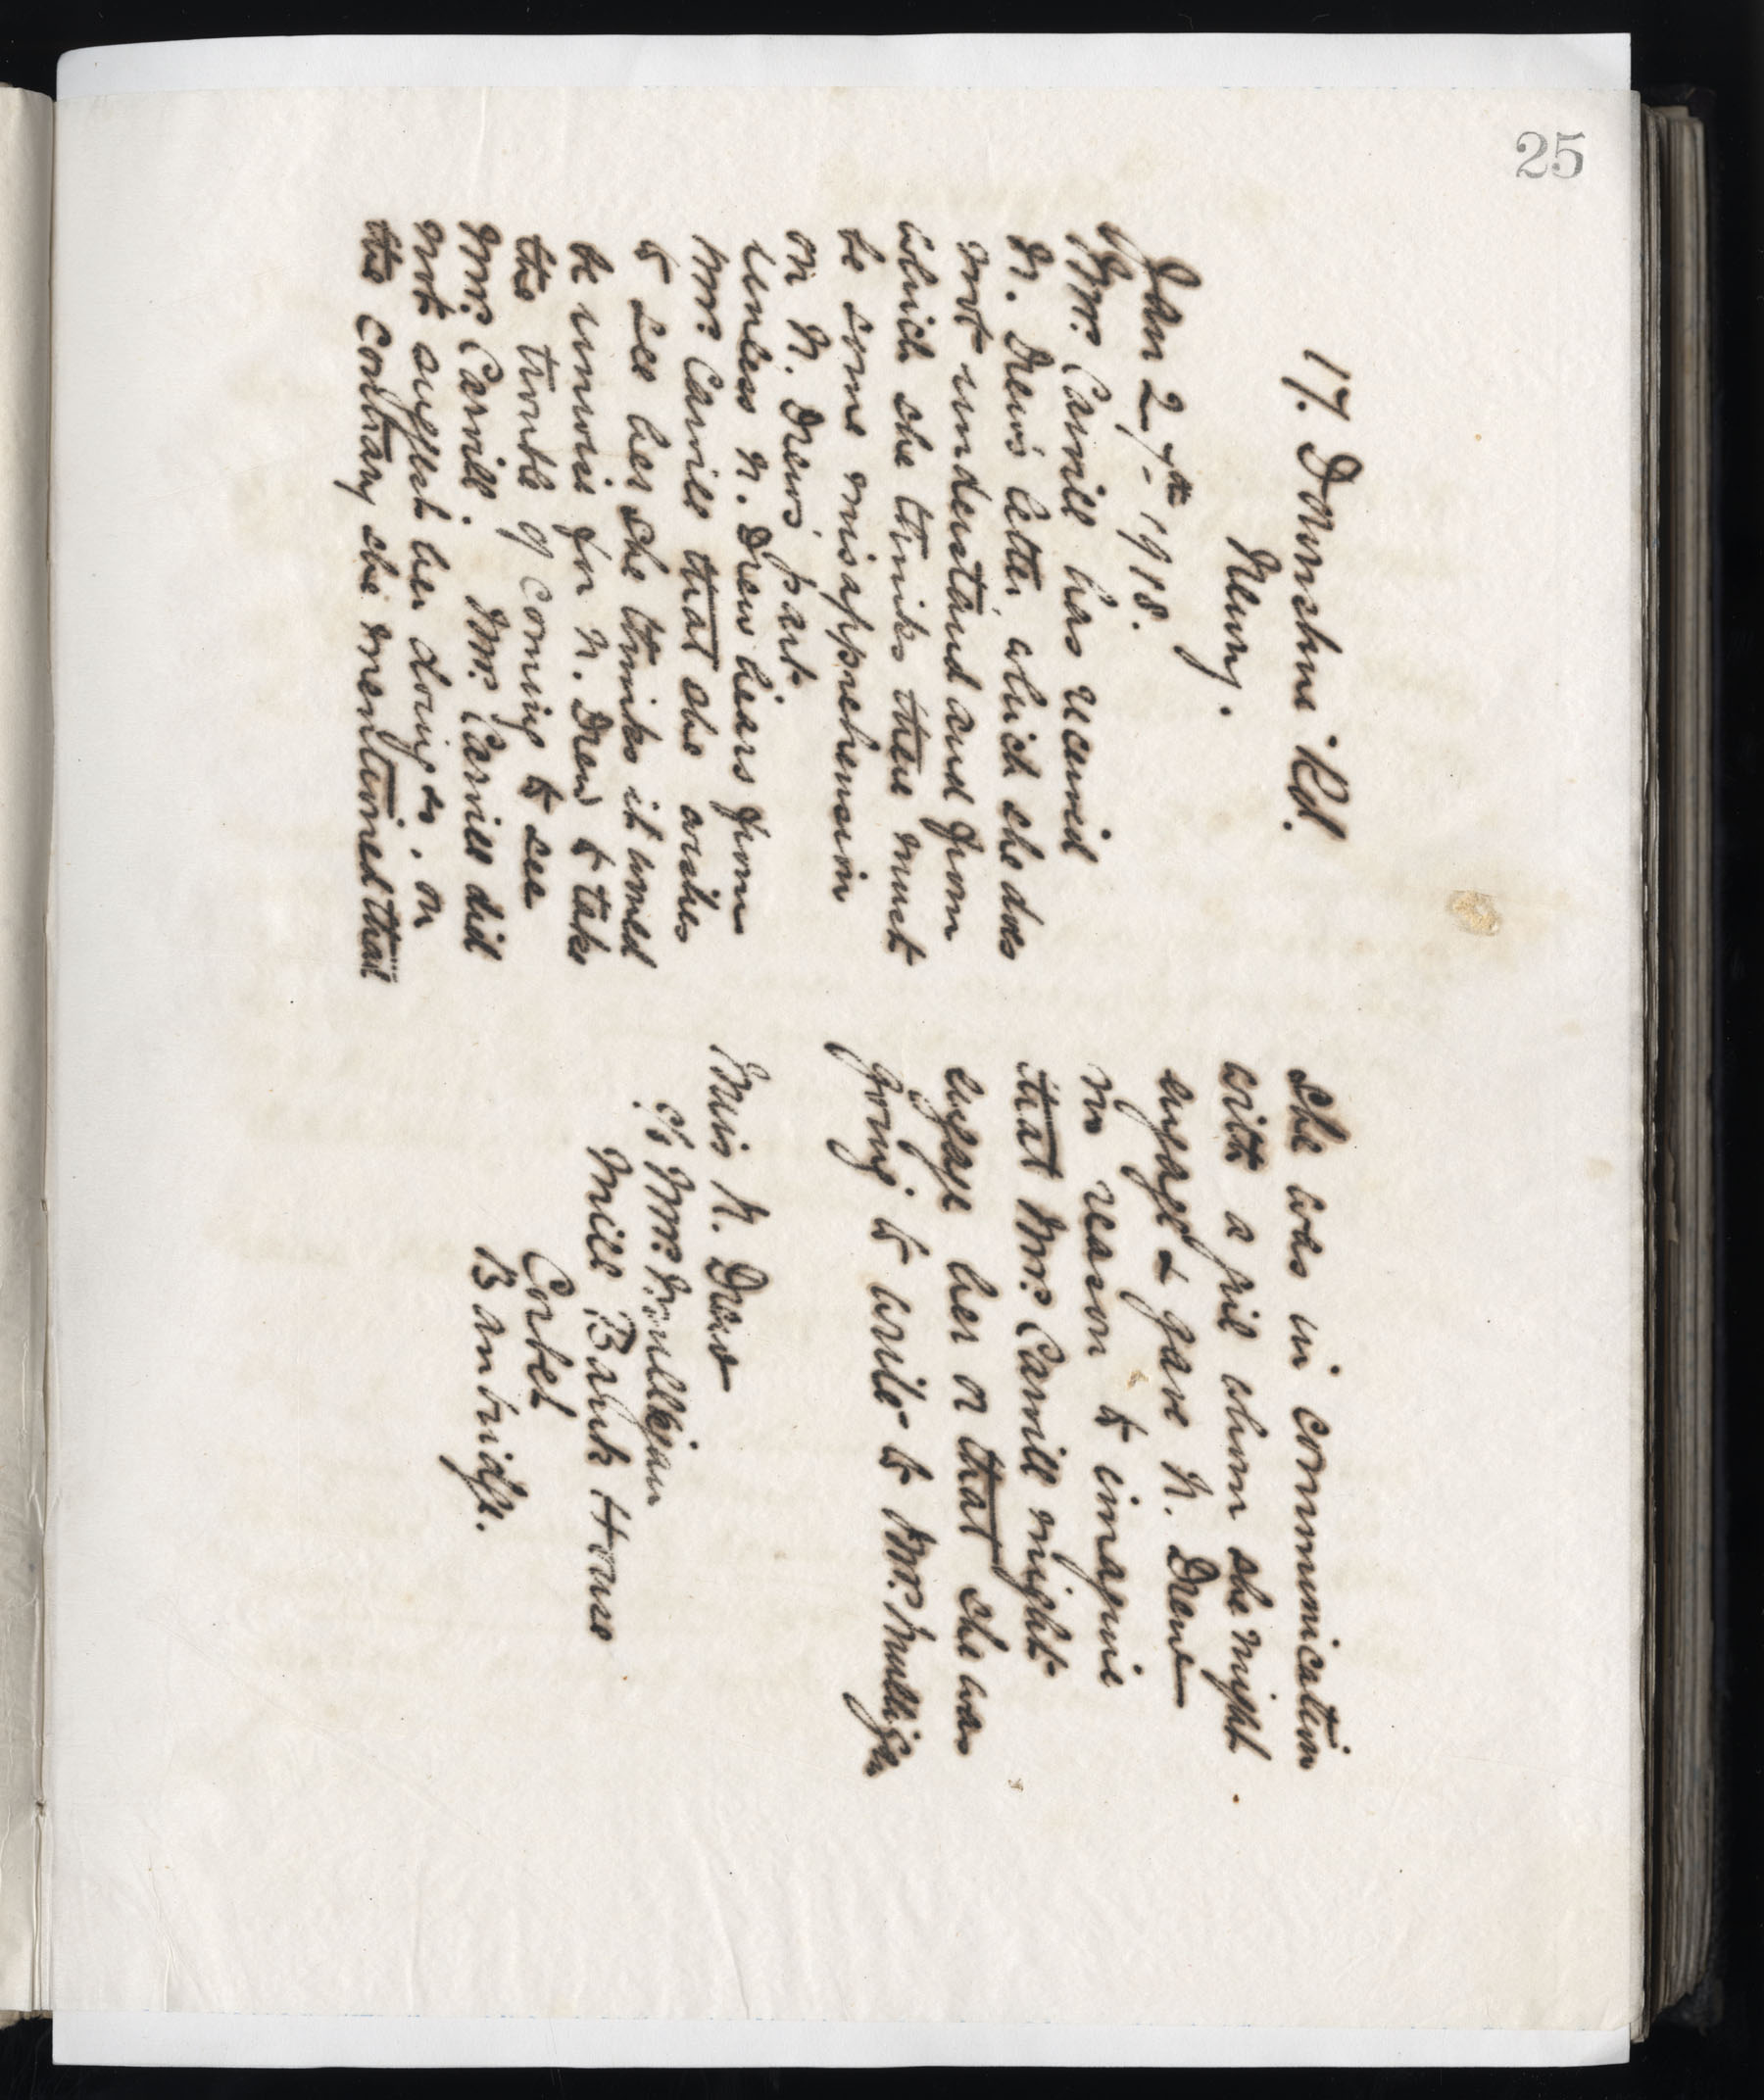 25
17. Downshire Rd.
Newry.
Jan 27th 1918.
Mrs. Carvill has received
N. Drew's letter, which she does
not understand and from
which she thinks there must
be some misapprehension
on N. Drew's part.
Unless N. Drew hears from
Mrs. Carvill that she wishes
to see her she thinks it would
be unwise for N. Drew to take
the trouble of coming to see
Mrs. Carvill. Mrs. Carvill did
not suggest her doing so. On
the contrary she mentioned that
she was in communication
with a girl whom she might
engage & gave N. Drew
no reason to imagine
that Mrs. Carvill might
engage her or that she was
going to write to Mrs. Mulligan
Miss N. Drew
c/o Mrs. Mulligan
Mill Bank House
Corbet
Banbridge.